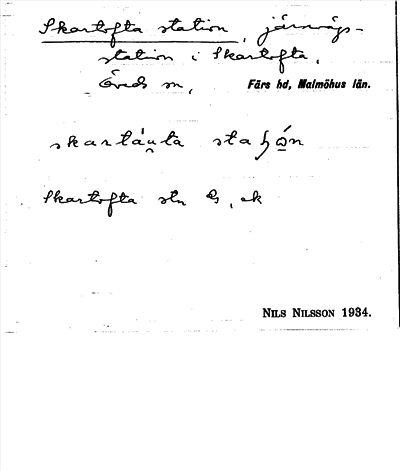 Skartofta station, järnvägs-
station i Skartofta,
Öveds sn, Färs hd, Malmöhus län.
skartáu̯ta staɧɷ́n
Skartofta stn
NILS NILSSON 1934.